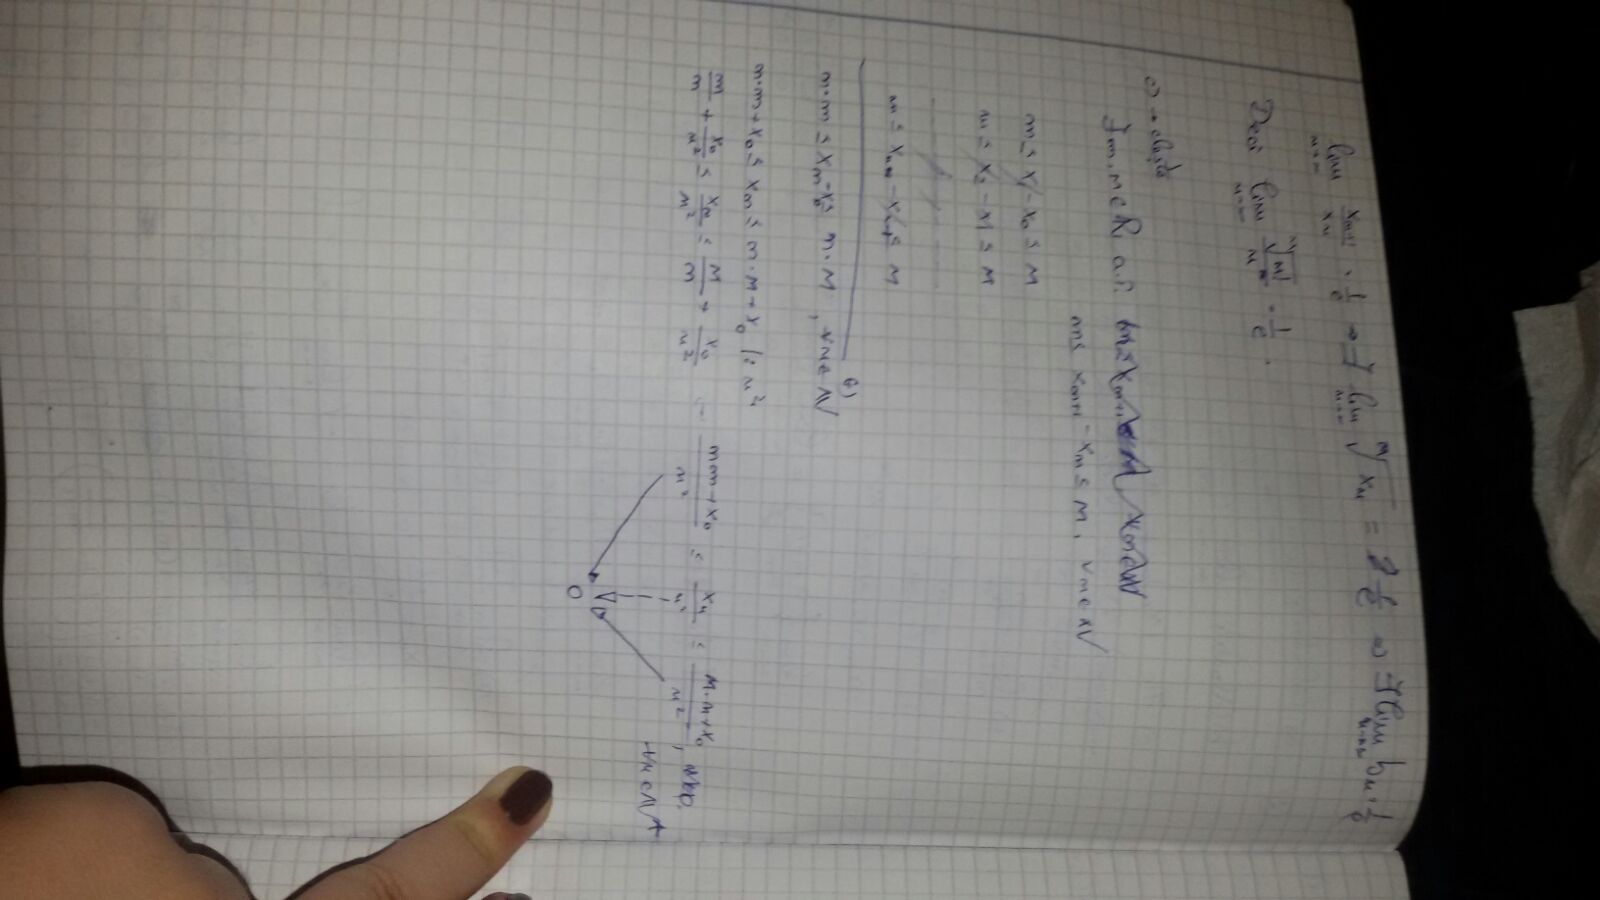 lim n→∞ x_{n+1}/x_n = 1/e ⇒ ∃ lim n→∞ ⁿ√x_n = 1/e ⇒ ∃ lim n→∞ b_n = 1/e
Deci lim n→∞ ⁿ√n! / n = 1/e.
∃ m, M ∈ R, a.î.
m ≤ x_{n+1} - x_n ≤ M, ∀ n ∈ N
m ≤ x_1 - x_0 ≤ M
m ≤ x_2 - x_1 ≤ M
m ≤ x_n - x_{n-1} ≤ M
(+)
n·m ≤ x_n - x_0 ≤ n·M, ∀ n ∈ N
n·m + x_0 ≤ x_n ≤ n·M + x_0 |: n²
m/n + x_0/n² ≤ x_n/n² ≤ M/n + x_0/n² (nm + x_0)/n² ≤ x_n/n² ≤ (M·n + x_0)/n², ∀ n ∈ N*
0